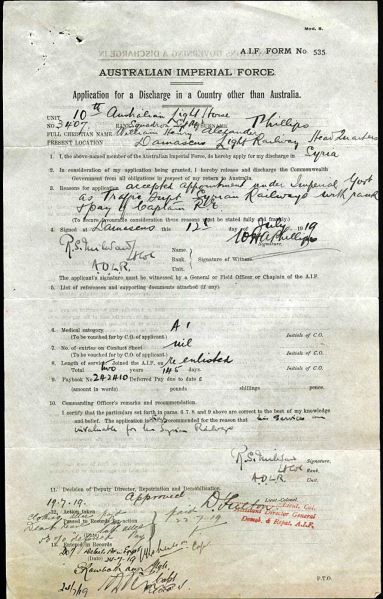 Mod. B.
A.I.F. FORM No 535
AUSTRALIAN IMPERIAL FORCE.
Application for a Discharge in a Country other than Australia.
UNIT 10th Australian Light Horse
No 3407. RANK Squadron SURNAME Phillips
FULL CHRISTIAN NAME William Henry Alexander
PRESENT LOCATION Damascus Light Railway Head Quarters
1. I, the above-named member of the Australian Imperial Force, do hereby apply for my discharge in Syria
2. In consideration of my application being granted, I hereby release and discharge the Commonwealth
Government from all obligations in respect of my return to Australia.
3. Reasons for application accepted appointment under Imperial Govt
as Traffic Supt Syrian Railways with rank
& pay of Captain R.E.
(To secure favourable consideration these reasons must be stated fully and frankly.)
4. Signed at Damascus this 12th day of July 1919
W H A Phillips
Name
Rank
Unit.
Signature of Witness.
Lt Col
A D L R.
The applicant's signature must be witnessed by a General or Field Officer or Chaplain of the A.I.F.
5. List of references and supporting documents attached (if any):
6. Medical category A1
(To be vouched for by C.O. of applicant) Initials of C.O.
7. No. of entries on Conduct Sheet nil
(To be vouched for by C.O. of applicant) Initials of C.O.
8. Length of service: Joined the A.I.F. on re enlisted
Total two years 145 days. Initials of C.O.
9. Paybook No 242410 Deferred Pay due to date £
(amount in words) pounds shillings pence.
10. Commanding Officer's remarks and recommendation.
I certify that the particulars set forth in paras. 6, 7, 8, and 9 above are correct to the best of my knowledge
and belief. The application is recommended for the reason that his services are
invaluable for the Syrian Railways
Signature.
Lt Col Rank.
A D L R Unit.
11. Decision of Deputy Director, Repatriation and Demobilisation.
Approved
19.7.19.
Lieut.-Colonel.
Director General
Demob. & Repat. A.I.F.
12. Action taken
Passed to Records for action
22.7.19
13. Entered in Records
24.7.19
P.T.O.